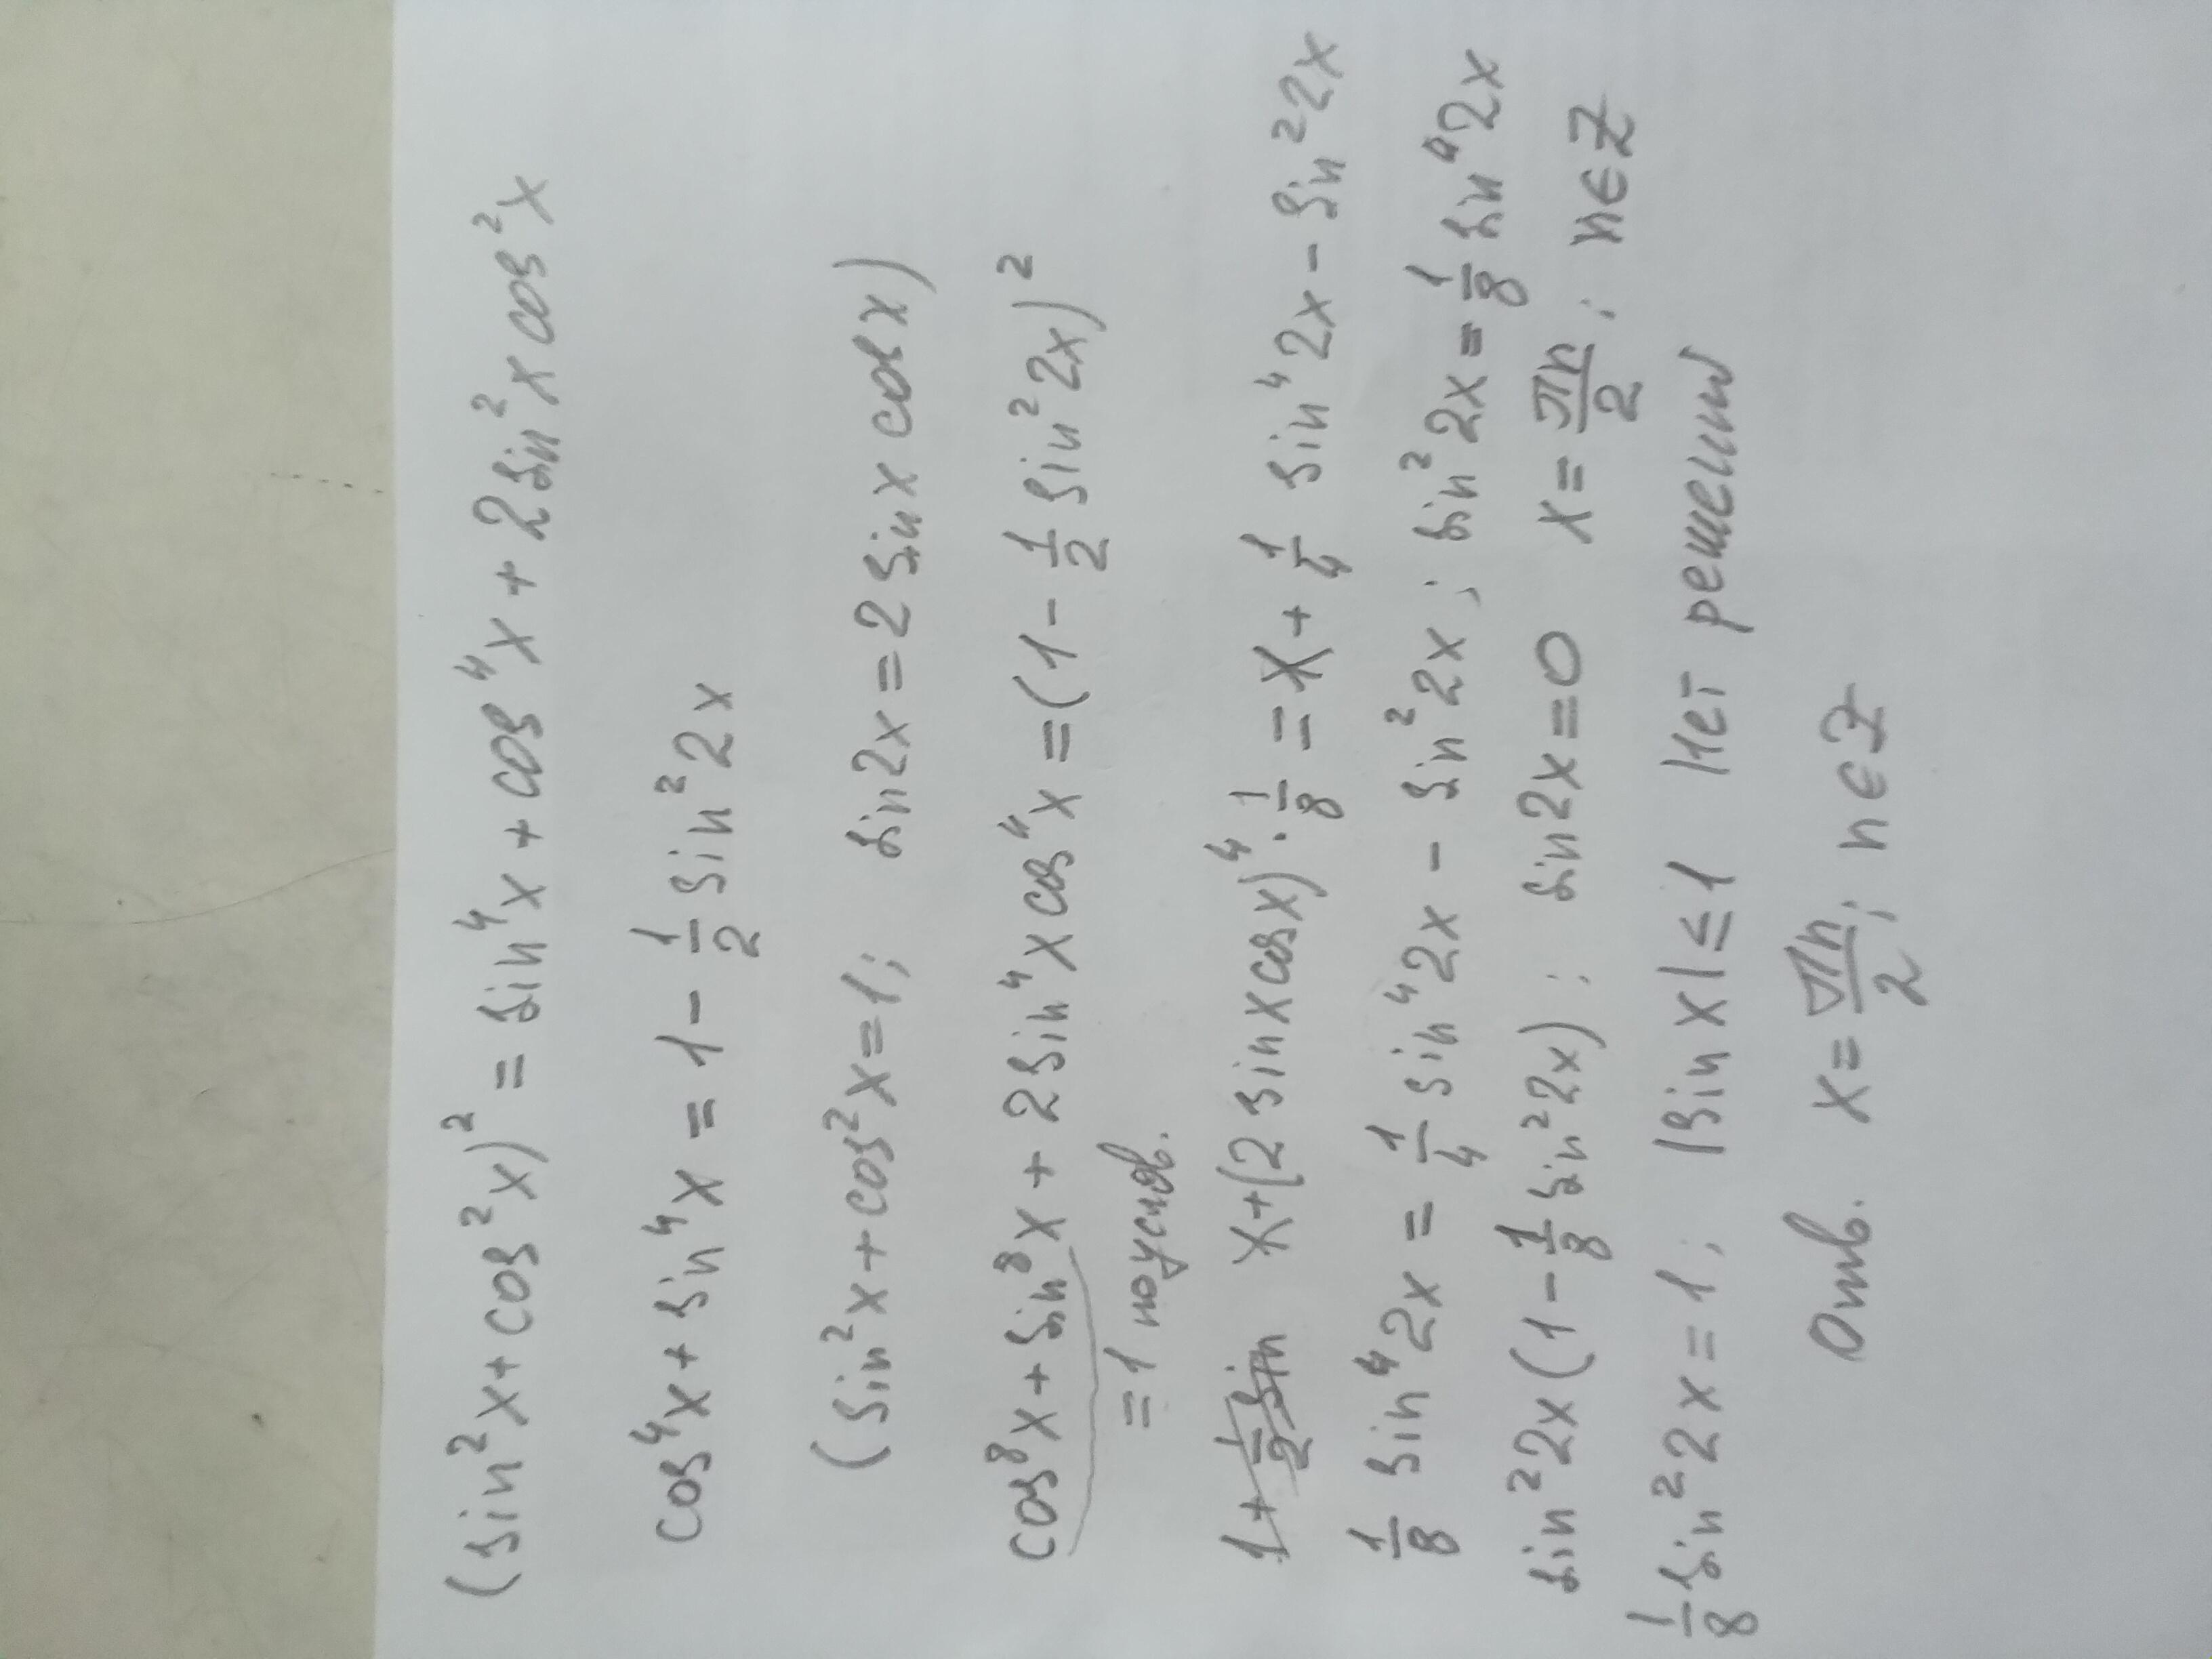 (sin²x+cos²x)² = sin⁴x+cos⁴x+2sin²x cos²x
cos⁴x+sin⁴x = 1 - 1/2 sin²2x
(sin²x+cos²x=1; sin2x=2sinx cosx)
cos⁸x+sin⁸x+2sin⁴x cos⁴x=(1-1/2 sin²2x)²
=1 по услов.
1+1/2 sin 1+(2sinxcosx)⁴·1/8=1+1/4 sin⁴2x-sin²2x
1/8 sin⁴2x=1/4 sin⁴2x-sin²2x; sin²2x=1/8 sin⁴2x
sin²2x(1-1/8 sin²2x); sin2x=0 x=πn/2; n∈Z
1/8 sin²2x=1; |sinx|≤1 Нет решении
Отв. x=πn/2; n∈Z